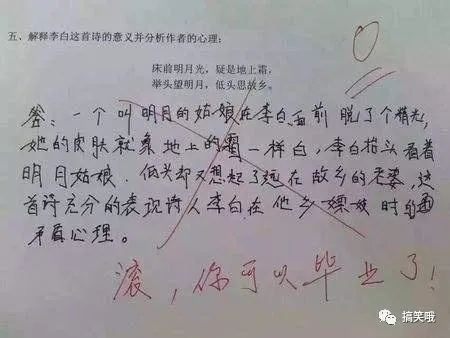 五、解释李白这首诗的意义并分析作者的心理:
0
床前明月光，疑是地上霜，
举头望明月，低头思故乡。
答：一个叫明月的姑娘在李白面前脱了个精光，
她的皮肤就象地上的霜一样白，李白抬头看着
明月姑娘．低头却又想起了远在故乡的老婆，这
首诗充分的表现诗人李白在他乡嫖妓时的
矛盾心理。
滚，你可以毕业了！
搞笑哦